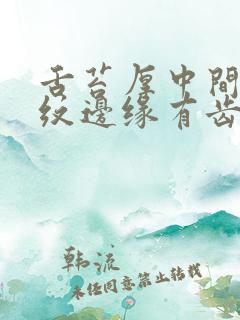 舌苔厚中間
纹邊缘有齿
韩流
未经同意禁止转载